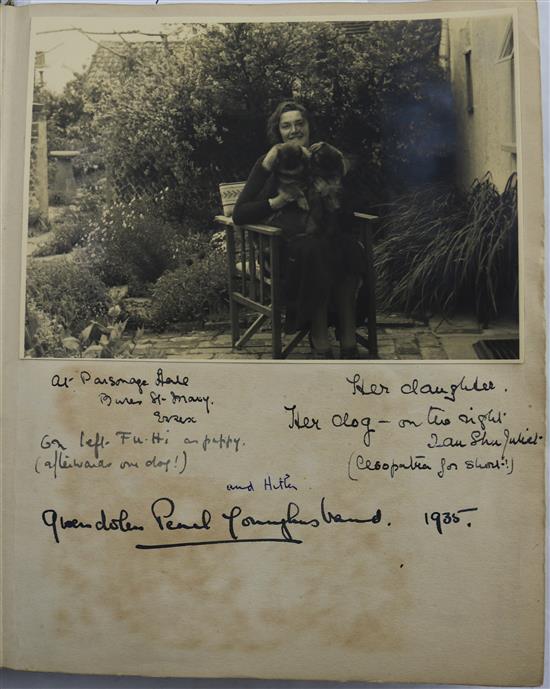 At Parsonage Hall
Bures St. Mary.
Essex
On left. Fu-Hi as puppy.
(afterwards our dog!)
Her daughter.
Her dog - on the right.
Juliet
(Cleopatra for short!)
and Hitler.
Gwendolen Pearl Younghusband. 1935.